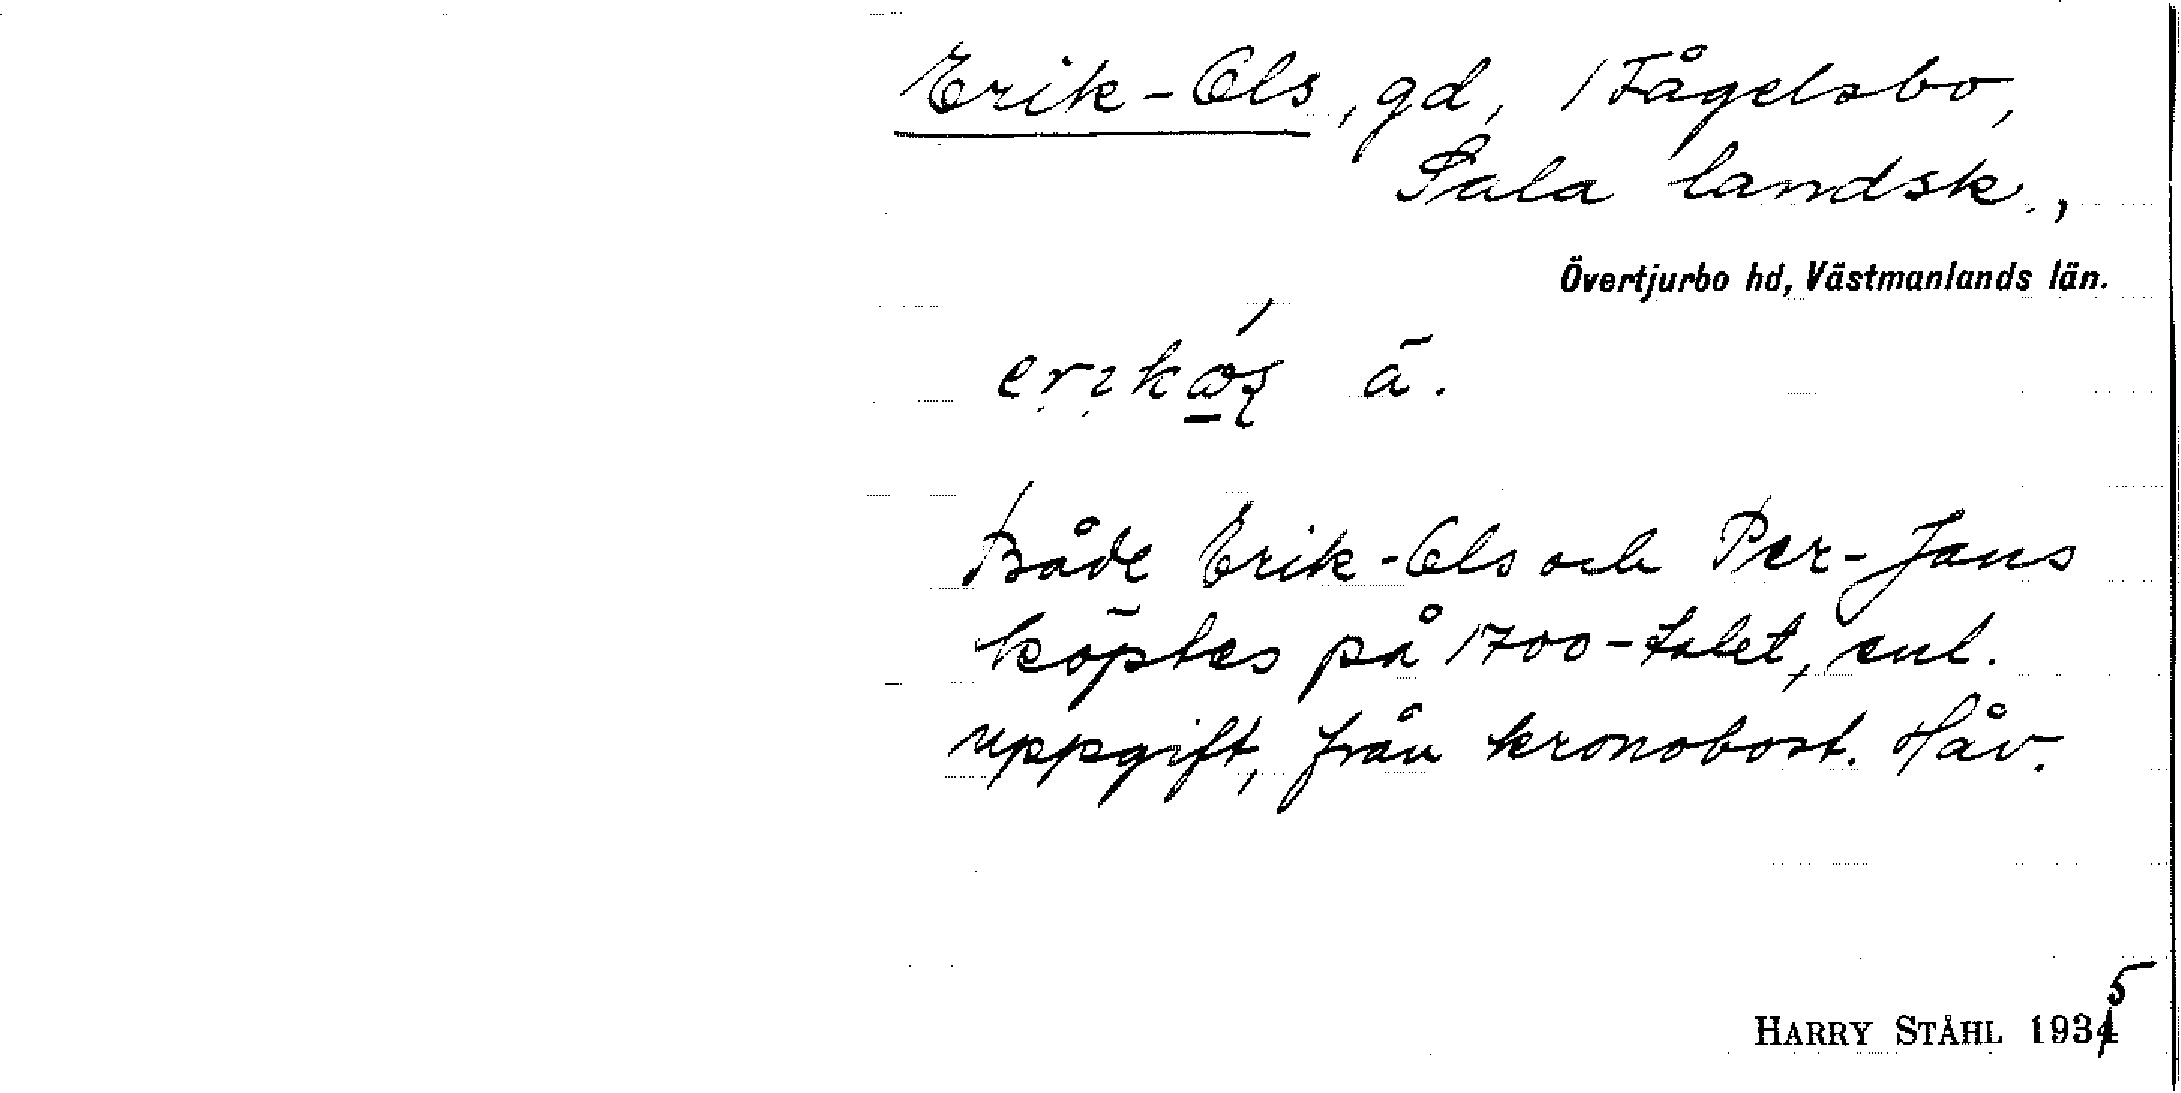 Erik-Ols, gd, 1 Fågelsbo,
Sala landsk.,
Övertjurbo hd, Västmanlands län.
ä.
Både Erik-Ols och Per-Jans
köptes på 1700-talet, enl.
uppgift, från kronobost. Håv.
HARRY STÅHL 1935